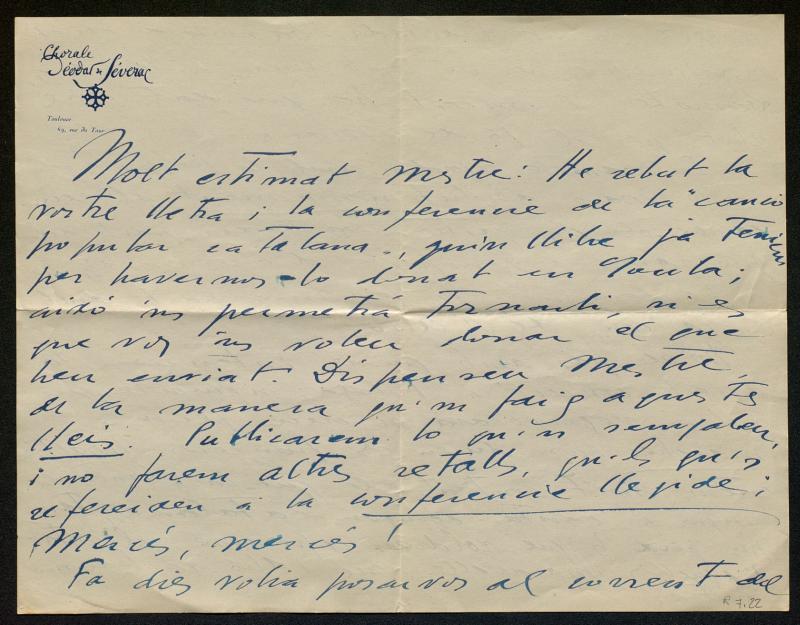 Chorale
Déodat de Séverac
Toulouse
69, rue du Taur
Molt estimat mestre: He rebut la
vostre lletra i la conferencie de la "canço
popular catalana", quin llibre ja teniem
per havernos-lo donat en Joula;
aixó 'ns permetrá tornarli, si es
que vos 'ns voleu donar el que
heu enviat. Dispenseu Mestre,
de la manera qu'm faig aquests
lleis. Publicarem lo qu'ns sengaleu,
i no farem altres retalls, qu'ls qu's
refereixen a la conferencie llegide;
Mercés, mercés!
Fa dies volia posarvos al corrent del
R 7.22